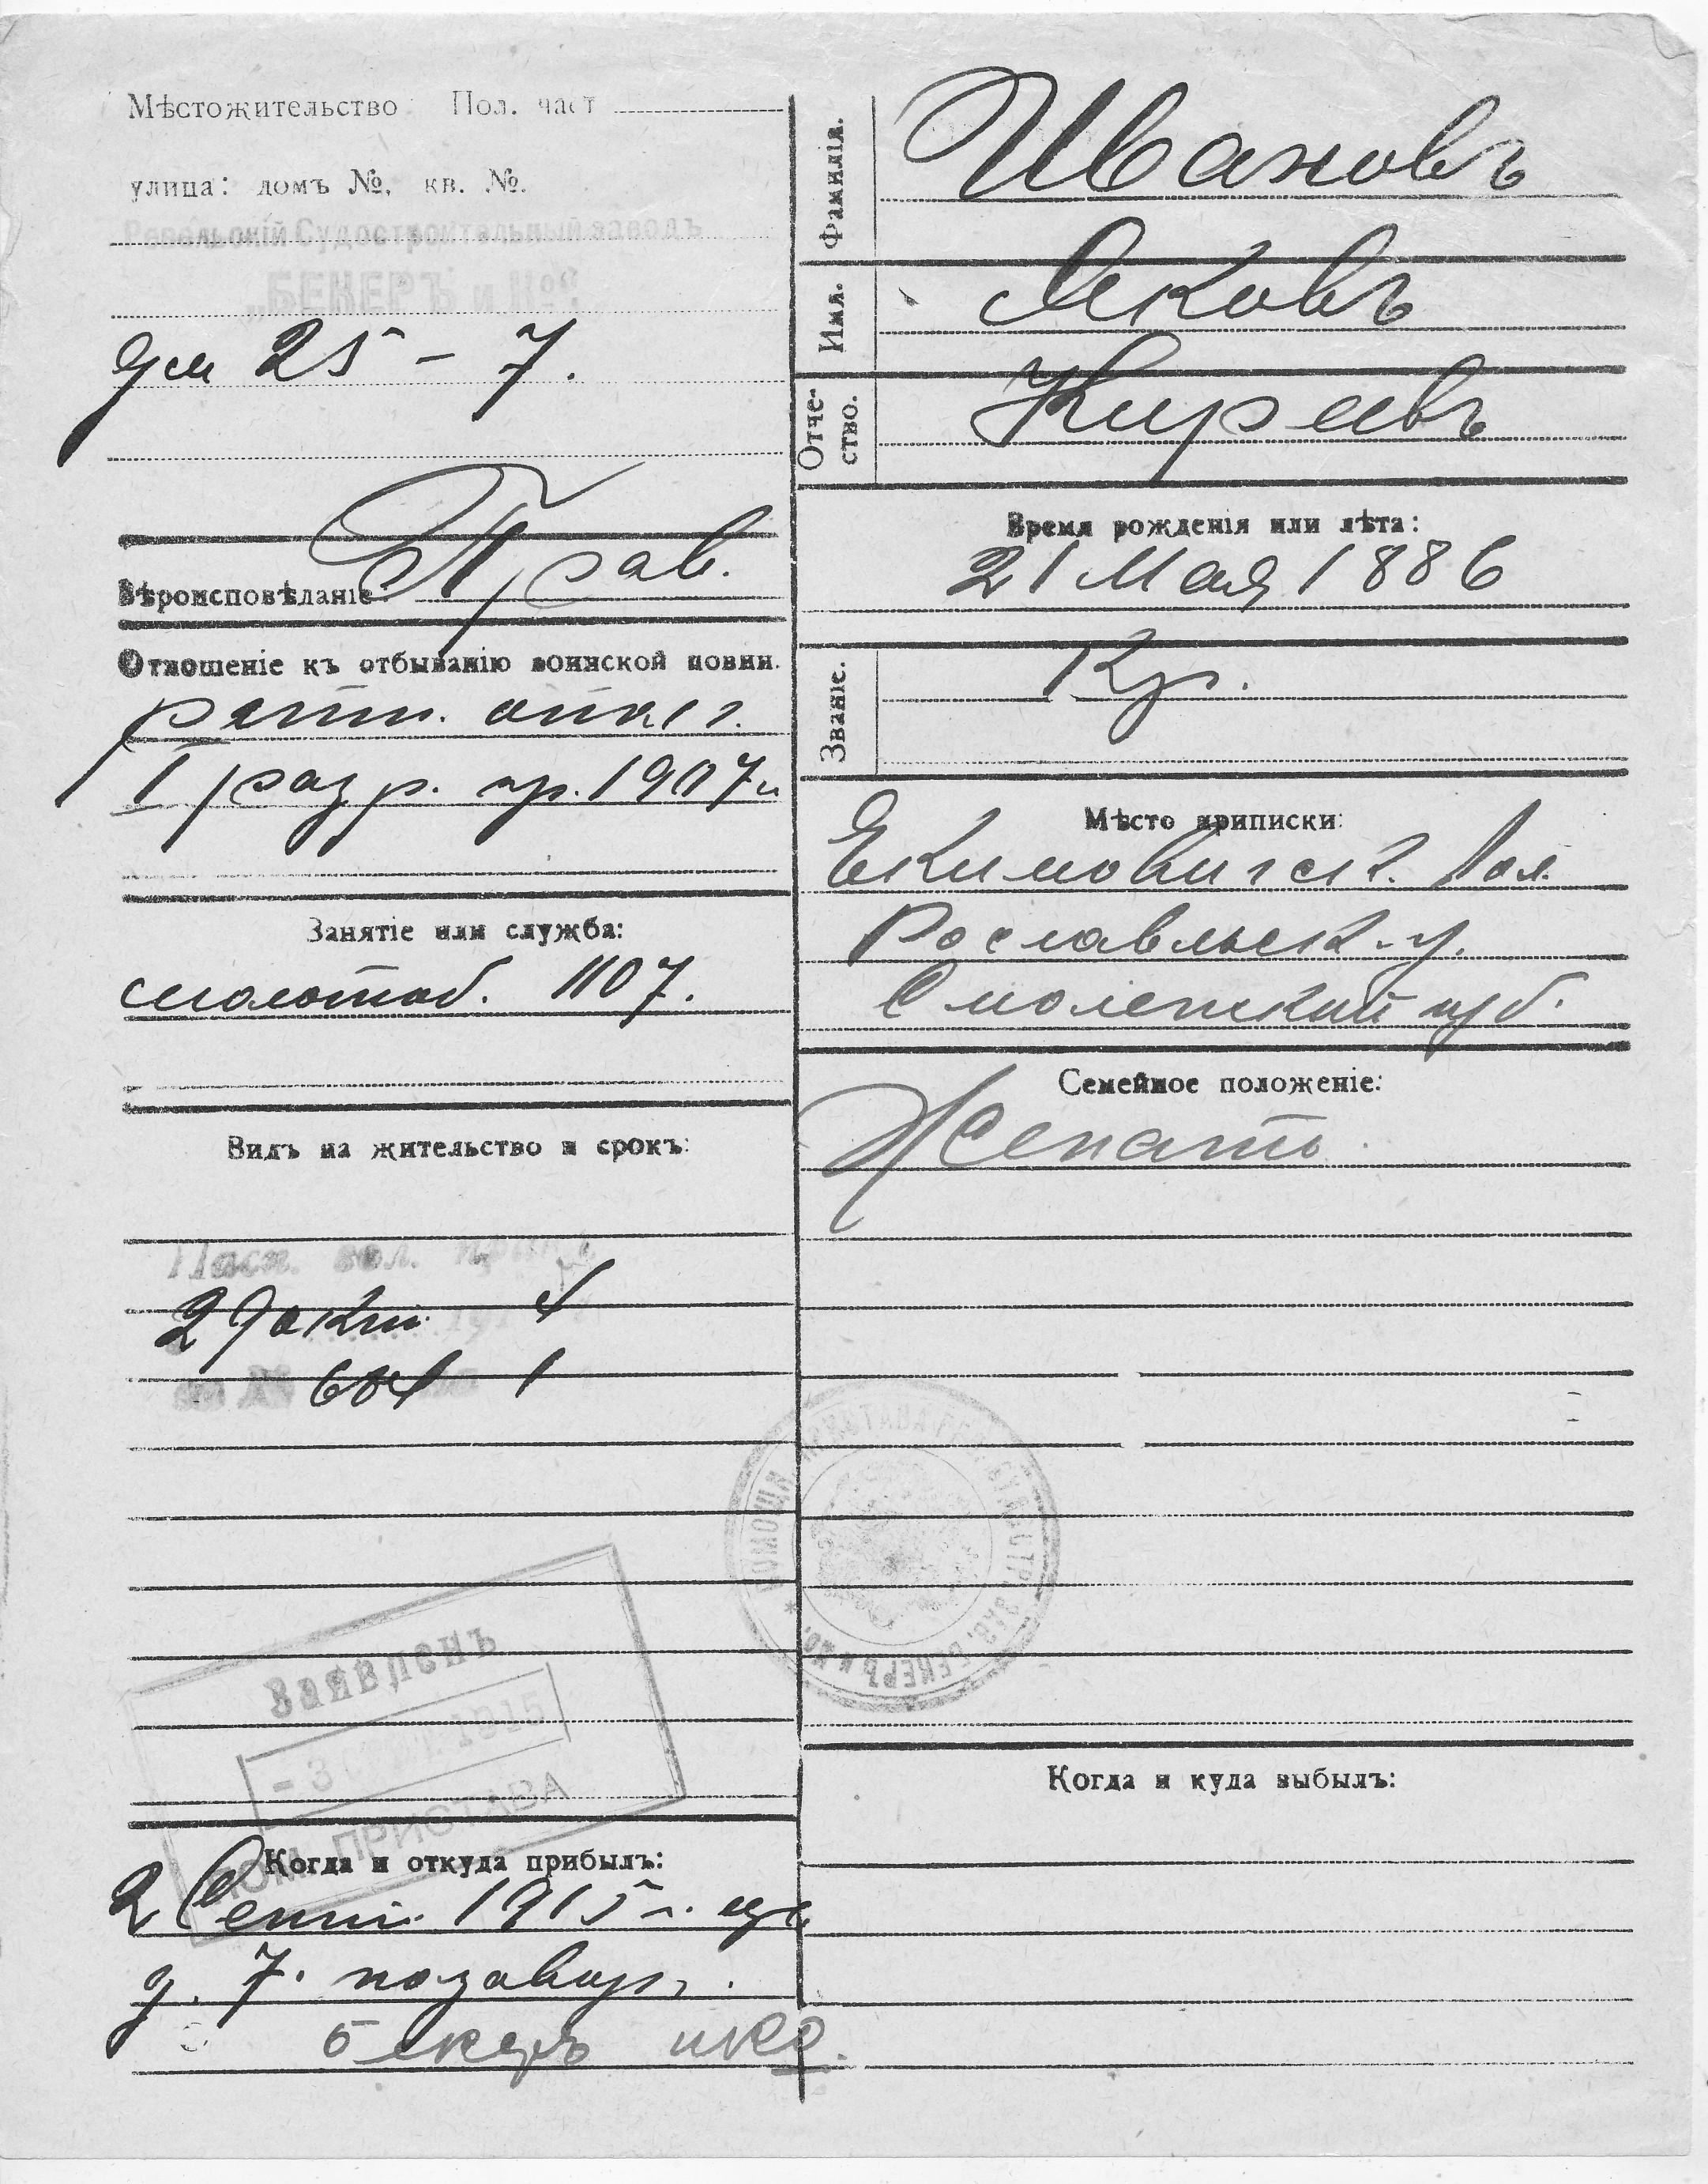 Мѣстожительство: Пол. част
улица: домъ №, кв. №.
Ревельскій Судостроительный заводъ
„БЕКЕРЪ и Ко“
дм 25 – 7.
Вѣроисповѣданіе: Прав.
Отношеніе къ отбыванію воинской повин.
ратн. опол.
I разр. пр. 1907 г.
Занятіе или служба:
молотоб. 1107.
Видъ на жительство и срокъ:
Пасп. вол. прав.
29 Окт 4
за № 684 1
Заявленъ
– 3 СЕНТ. 1915
ПОМ. ПРИСТАВА
Когда и откуда прибылъ:
2 Сент. 1915 г. изъ
д. 7.
Бекеръ и Ко.
Фамилія. Ивановъ
Имя. Яковъ
Отчество. Киреевъ
Время рожденія или лѣта:
21 Мая 1886
Званіе. Кр.
Мѣсто приписки:
Екимовичск. Вол.
Рославльск. у.
Смоленской губ.
Семейное положеніе:
Женатъ
ПОМОЩН. ПРИСТАВА СТР. ЗАВ. БЕКЕРЪ и Ко.
Когда и куда выбылъ: